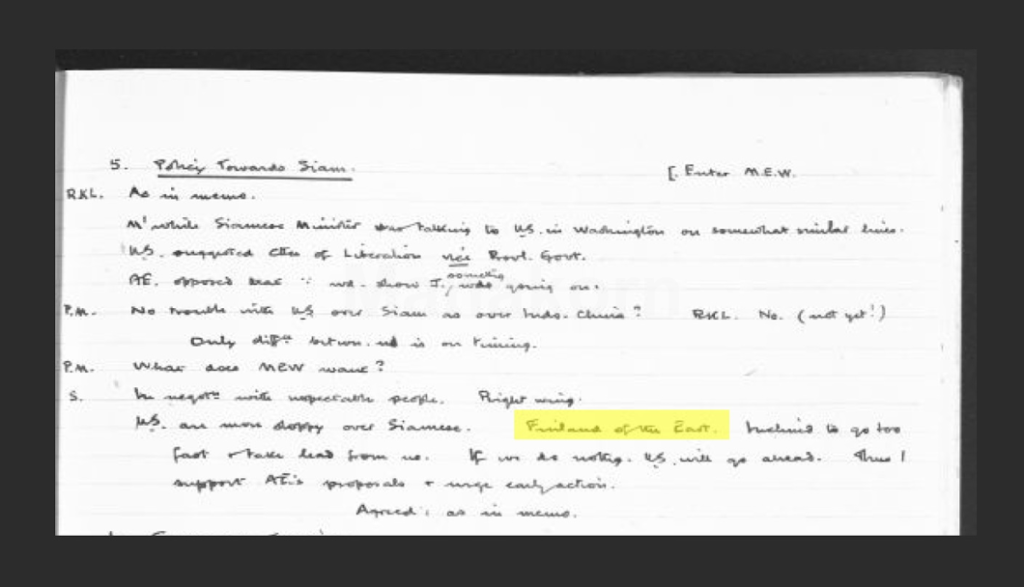 5. Policy Towards Siam. [. Enter M.E.W.
RKL. As in memo.
M'while Siamese Minister talking to US. in Washington on somewhat similar lines.
US. suggested Cttee of Liberation vice Provl. Govt.
AE. opposed that ∵ wd. show J. something was going on.
P.M. No trouble with US over Siam as over Indo. China? RKL. No. (not yet!)
Only diffce betwn. us is on timing.
P.M. What does MEW want?
S. In negotn with respectable people. Right wing.
US. are more sloppy over Siamese. Finland of the East. Inclined to go too
fast + take lead from us. If we do nothg. US. will go ahead. Thus I
support AE's proposals + urge early action.
Agreed: as in memo.